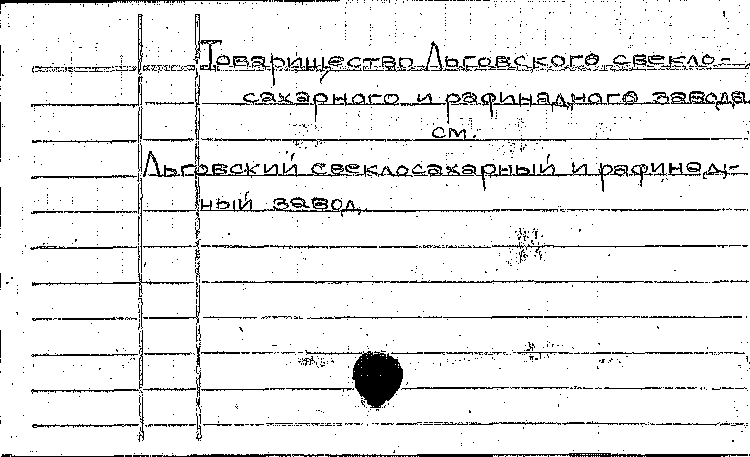 Товарищество Льговского свекло-
сахарного и рафинадного завода
см.
Льговский свеклосахарный и рафинад-
ный завод.